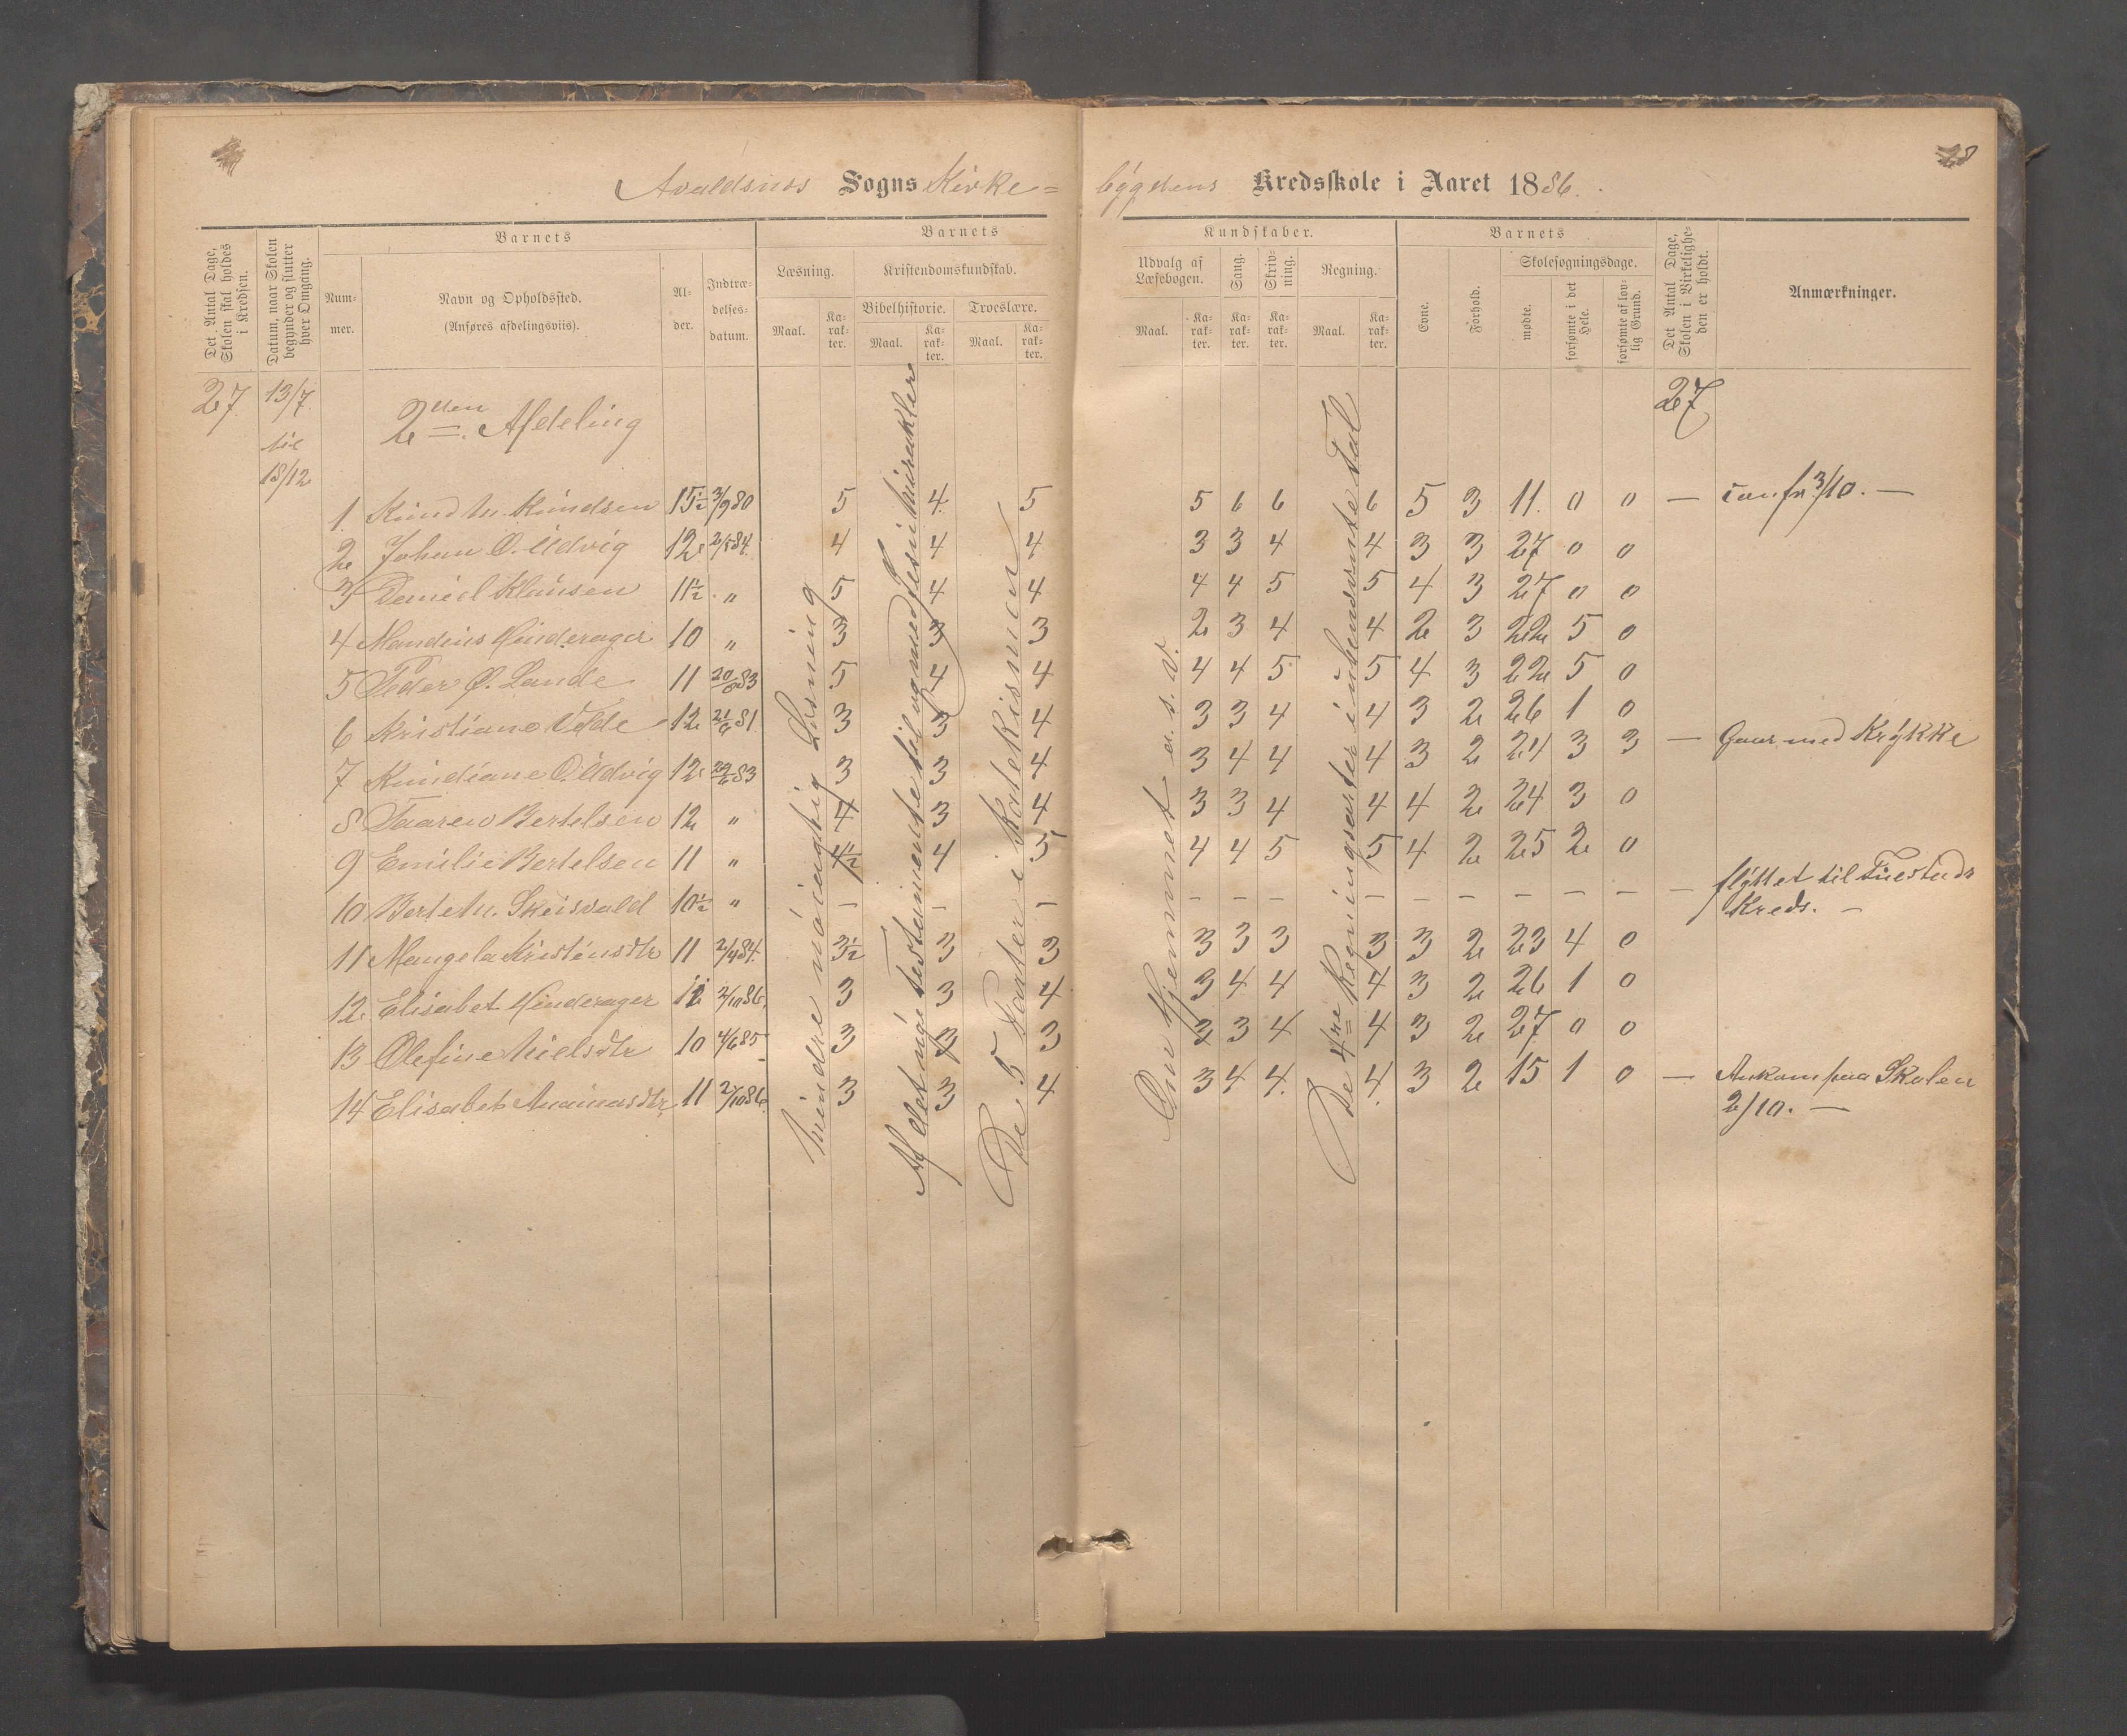 28
Avaldsnes Sogns Kirke=
bygdens Kredsskole i Aaret 1886.
Det Antal Dage, Skolen skal holdes i Kredsen.
Datum, naar Skolen begynder og slutter hver Omgang.
Barnets
Num-mer.
Navn og Opholdssted.
(Anføres afdelingsviis).
Al-der.
Indtræ-delses-datum.
Barnets
Læsning.
Kristendomskundskab.
Bibelhistorie. Troeslære.
Maal. Ka-rak-ter. Maal. Ka-rak-ter. Maal. Ka-rak-ter.
Kundskaber.
Udvalg af Læsebogen.
Sang. Skriv-ning. Regning.
Maal. Ka-rak-ter. Ka-rak-ter. Ka-rak-ter. Maal. Ka-rak-ter.
Barnets
Evne. Forhold.
Skolesøgningsdage.
mødte. forsømte i det Hele. forsømte af lov-lig Grund.
Det Antal Dage, Skolen i Virkelighe-den er holdt.
Anmærkninger.
27 13/7 til 18/12
2den Afdeling
27
1 Knud M. Knudsen 15½ 3/9 80 5 4 5 5 6 6 6 5 3 11 0 0 — Confr. 3/10. —
2 Johan O. Udvig 12 2/5 84 4 4 4 3 3 4 4 3 3 27 0 0
3 Daniel Klausen 11½ " 5 4 4 4 4 5 5 4 3 27 0 0
4 Mandius Hinderager 10 " 3 3 3 2 3 4 4 2 3 22 5 0
5 Peder Ø. Lande 11 20/6 83 5 4 4 4 4 5 5 4 3 22 5 0
6 Kristiane Velde 12 21/6 81 3 3 4 3 3 4 4 3 2 26 1 0
7 Knudiane O. Udvig 12 22/6 83 3 3 4 3 4 4 4 3 2 24 3 3 — Gaar med Krykke
8 Taaren Bertelsen 12 " 4 3 4 3 3 4 4 4 2 24 3 0
9 Emilie Bertelsen 11 " 4½ 4 5 4 4 5 5 4 2 25 2 0
10 Berte M. Skeisvold 10½ " — — — — — — — — — — — — — flyttet til
Kreds. —
11 Mangela Kristensdtr 11 2/4 84 3½ 3 3 3 3 3 3 3 2 23 4 0
12 Elisabet Hinderager 11 2/10 86 3 3 4 3 4 4 4 3 2 26 1 0
13 Olefine Nielsdtr 10 4/6 85 3 3 3 3 3 4 4 3 2 27 0 0
14 Elisabet 11 2/10 86 3 3 4 3 4 4 4 3 2 15 1 0 — Ankom paa Skolen
2/10. —
Mindre nöiagtig Læsning
Af det nye testamente til og med Jesu Mirakler
De 5 Parter i Katekismen
Om Hjemmet o. s. v.
De 4re Regningsarter i ubenævnte Tal